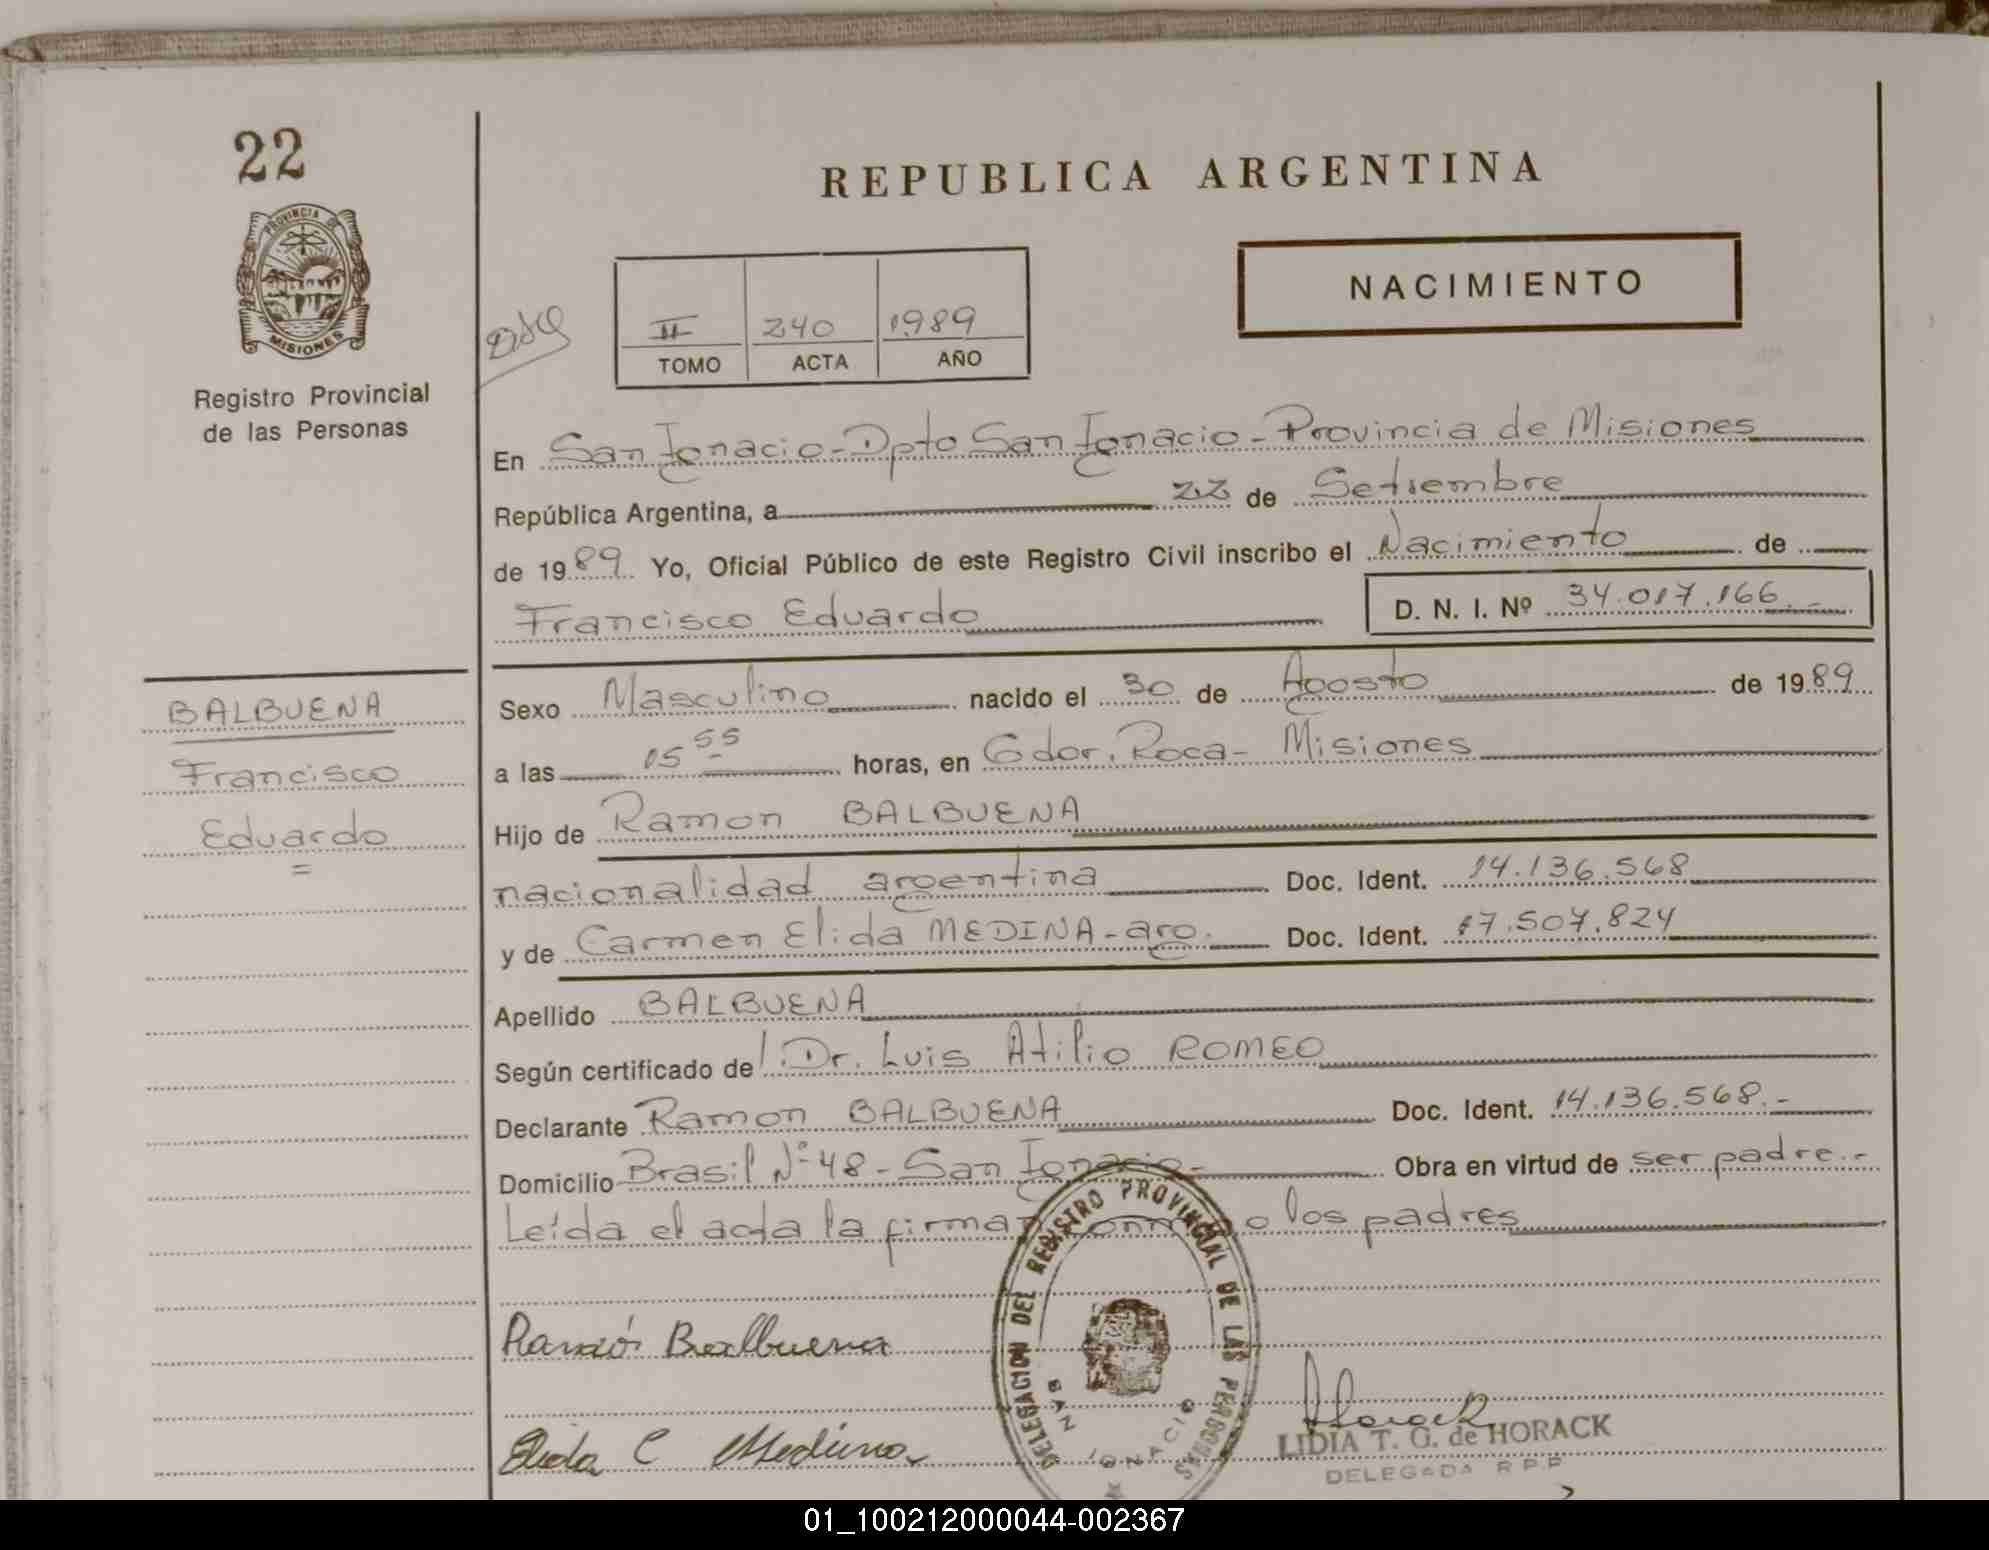 22
PROVINCIA DE
MISIONES
Registro Provincial
de las Personas
REPUBLICA ARGENTINA
NACIMIENTO
II 240 1989
TOMO ACTA AÑO
En San Ignacio - Dpto San Ignacio - Provincia de Misiones
República Argentina, a 22 de Setiembre
de 1989 Yo, Oficial Público de este Registro Civil inscribo el Nacimiento de
Francisco Eduardo D. N. I. Nº 34.017.166.-
BALBUENA
Francisco
Eduardo
Sexo Masculino nacido el 30 de Agosto de 1989
a las 15 55 horas, en Gdor. Roca - Misiones
Hijo de Ramon BALBUENA
nacionalidad argentina Doc. Ident. 14.136.568
y de Carmen Elida MEDINA - arg. Doc. Ident. 17.507.824
Apellido BALBUENA
Según certificado de l Dr. Luis Atilio ROMEO
Declarante Ramon BALBUENA Doc. Ident. 14.136.568.-
Domicilio Brasil Nº 48 - San Ignacio - Obra en virtud de ser padre.-
Leída el acta la firman conmigo los padres
Ramón Balbuena
Elida C Medina
DELEGACION DEL REGISTRO PROVINCIAL DE LAS PERSONAS
SAN IGNACIO
Horack
LIDIA T. G. de HORACK
DELEGADA R.P.P.
01_100212000044-002367